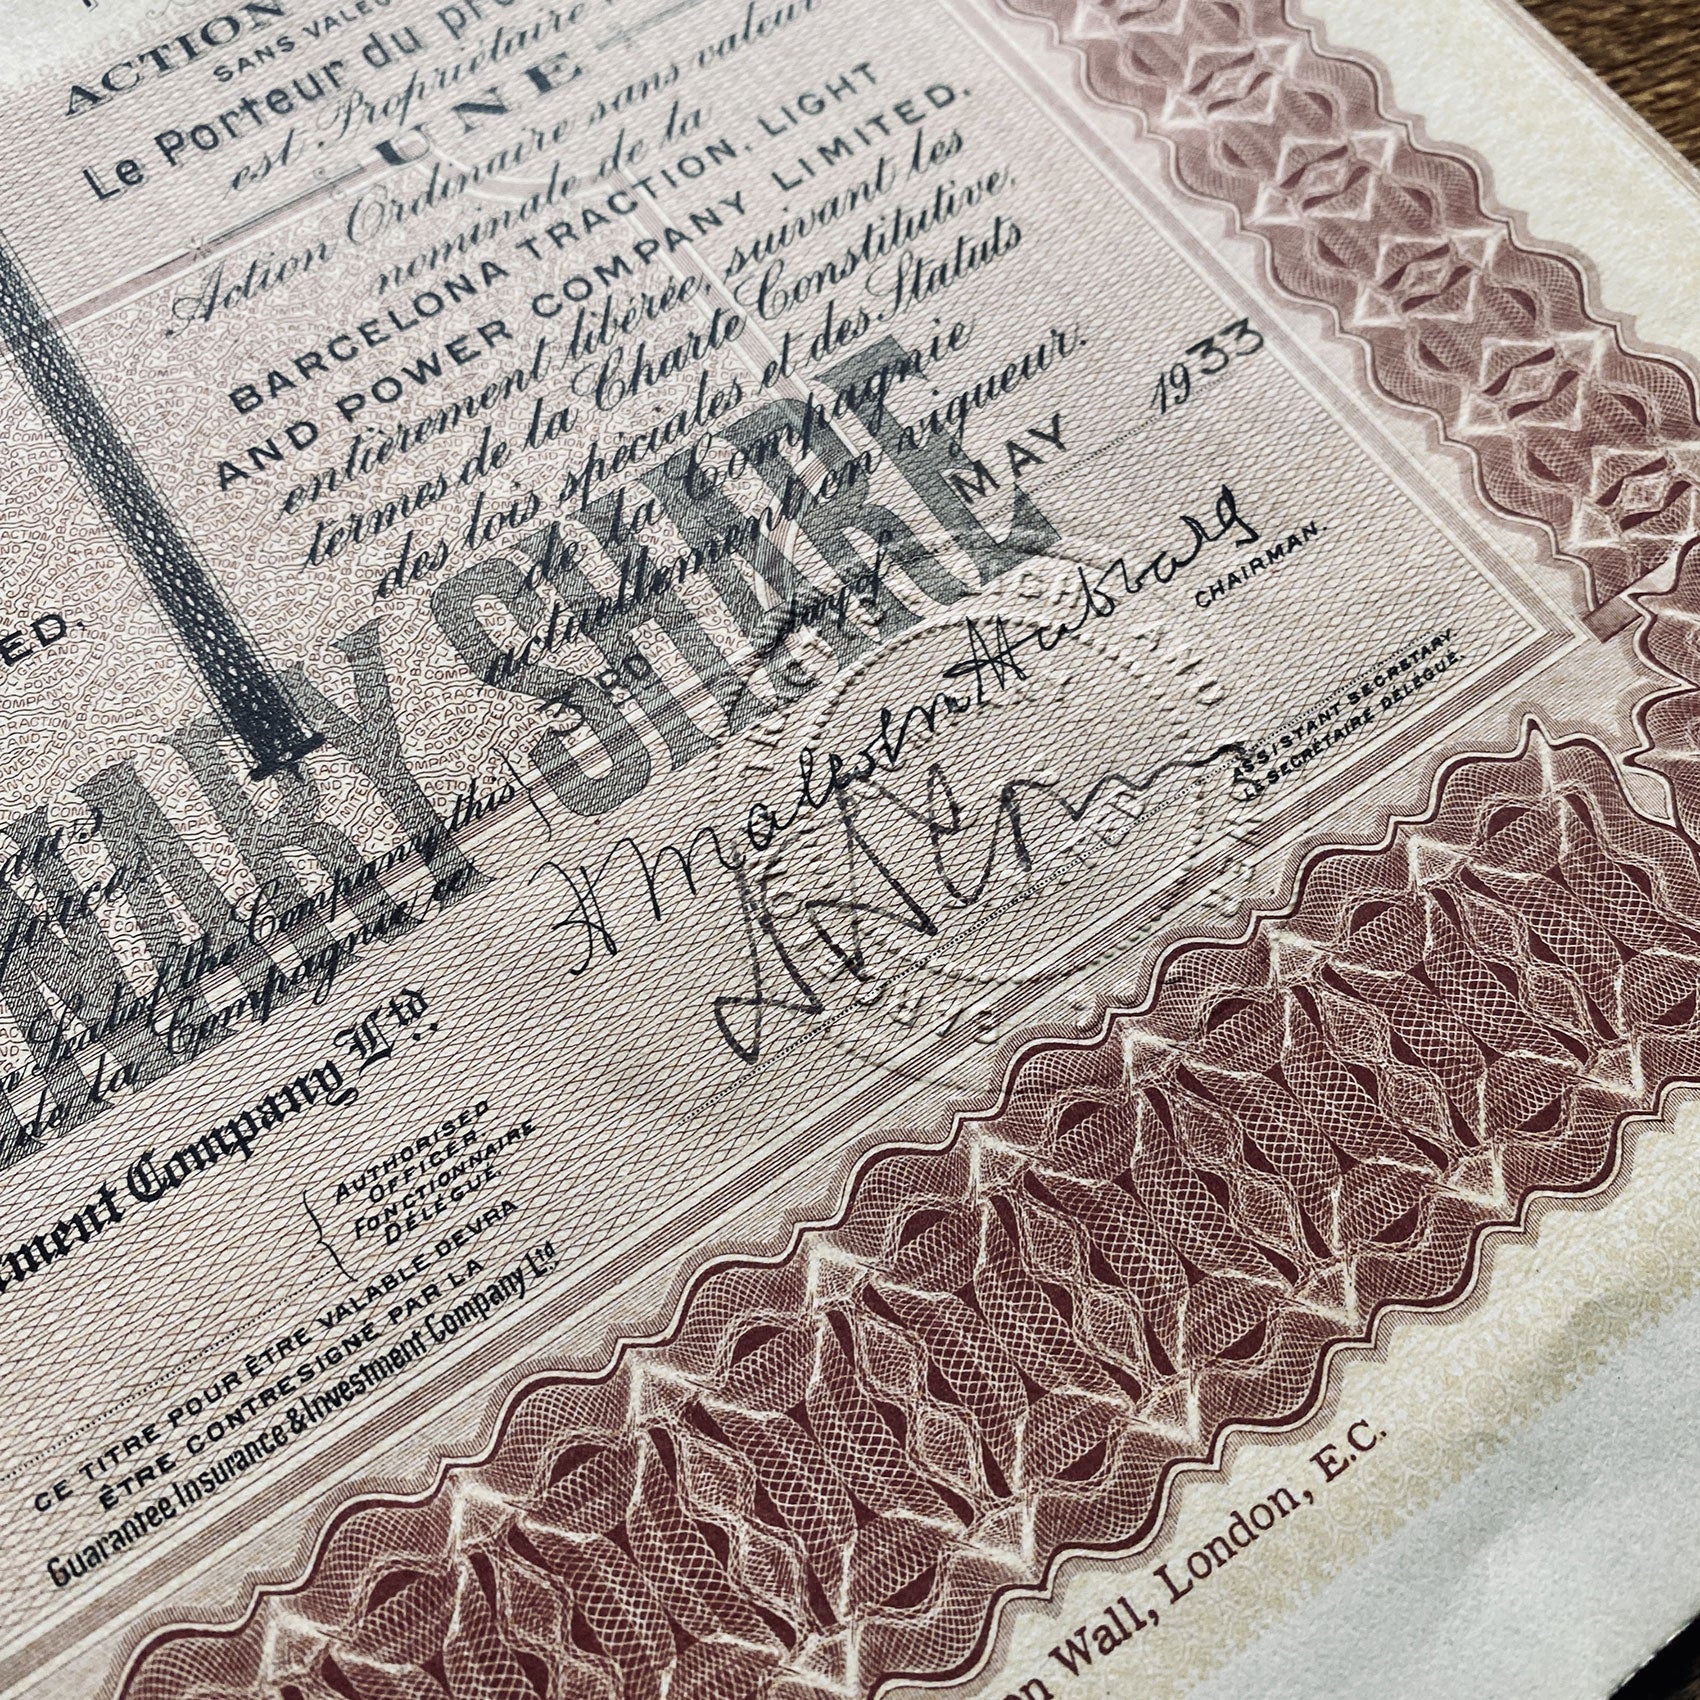 ACTION
SANS VALEU
Le Porteur du pré
est Propriétaire
UNE
Action Ordinaire sans valeur
nominale de la
BARCELONA TRACTION, LIGHT
AND POWER COMPANY LIMITED.
entièrement libérée, suivant les
termes de la Charte Constitutive,
des lois spéciales et des Statuts
de la Compagnie
actuellement en vigueur.
ARY SHARE
3RD day of MAY 1933
H Malcolm Hubbard
CHAIRMAN.
ASSISTANT SECRETARY
SECRÉTAIRE DÉLÉGUÉ.
ED.
Seal of the Company this
de la Compagnie ce
ment Company Ltd.
AUTHORISED
OFFICER.
FONCTIONNAIRE
DÉLÉGUÉ.
CE TITRE POUR ÊTRE VALABLE DEVRA
ÊTRE CONTRESIGNÉ PAR LA
Guarantee Insurance & Investment Company Ltd.
on Wall, London, E.C.